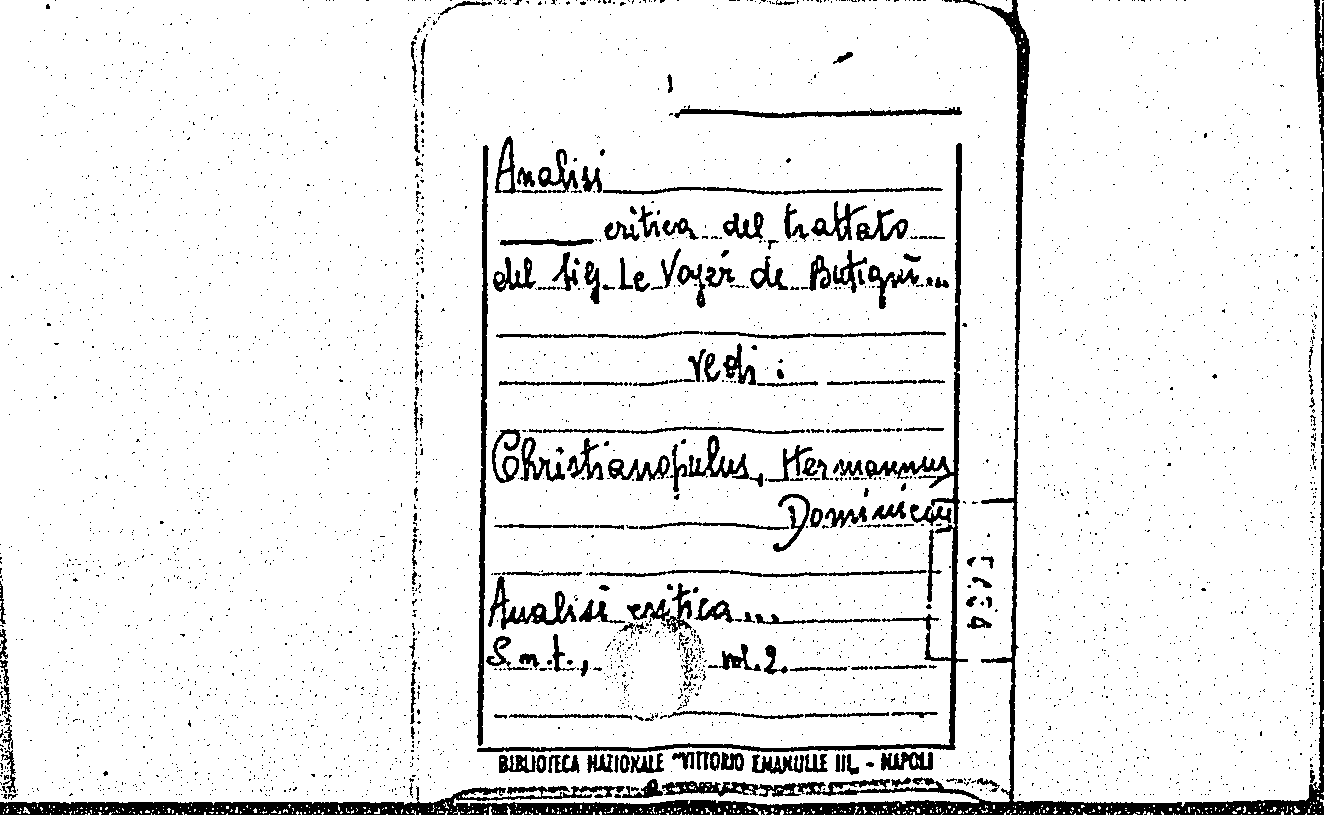 Analisi
critica del trattato
del sig. Le Voyer de Butigni...
vedi :
Christianopulus, Hermannus
Dominicus
Analisi critica...
S.n.t., vol.2.
BIBLIOTECA NAZIONALE "VITTORIO EMANUELE III„ - NAPOLI